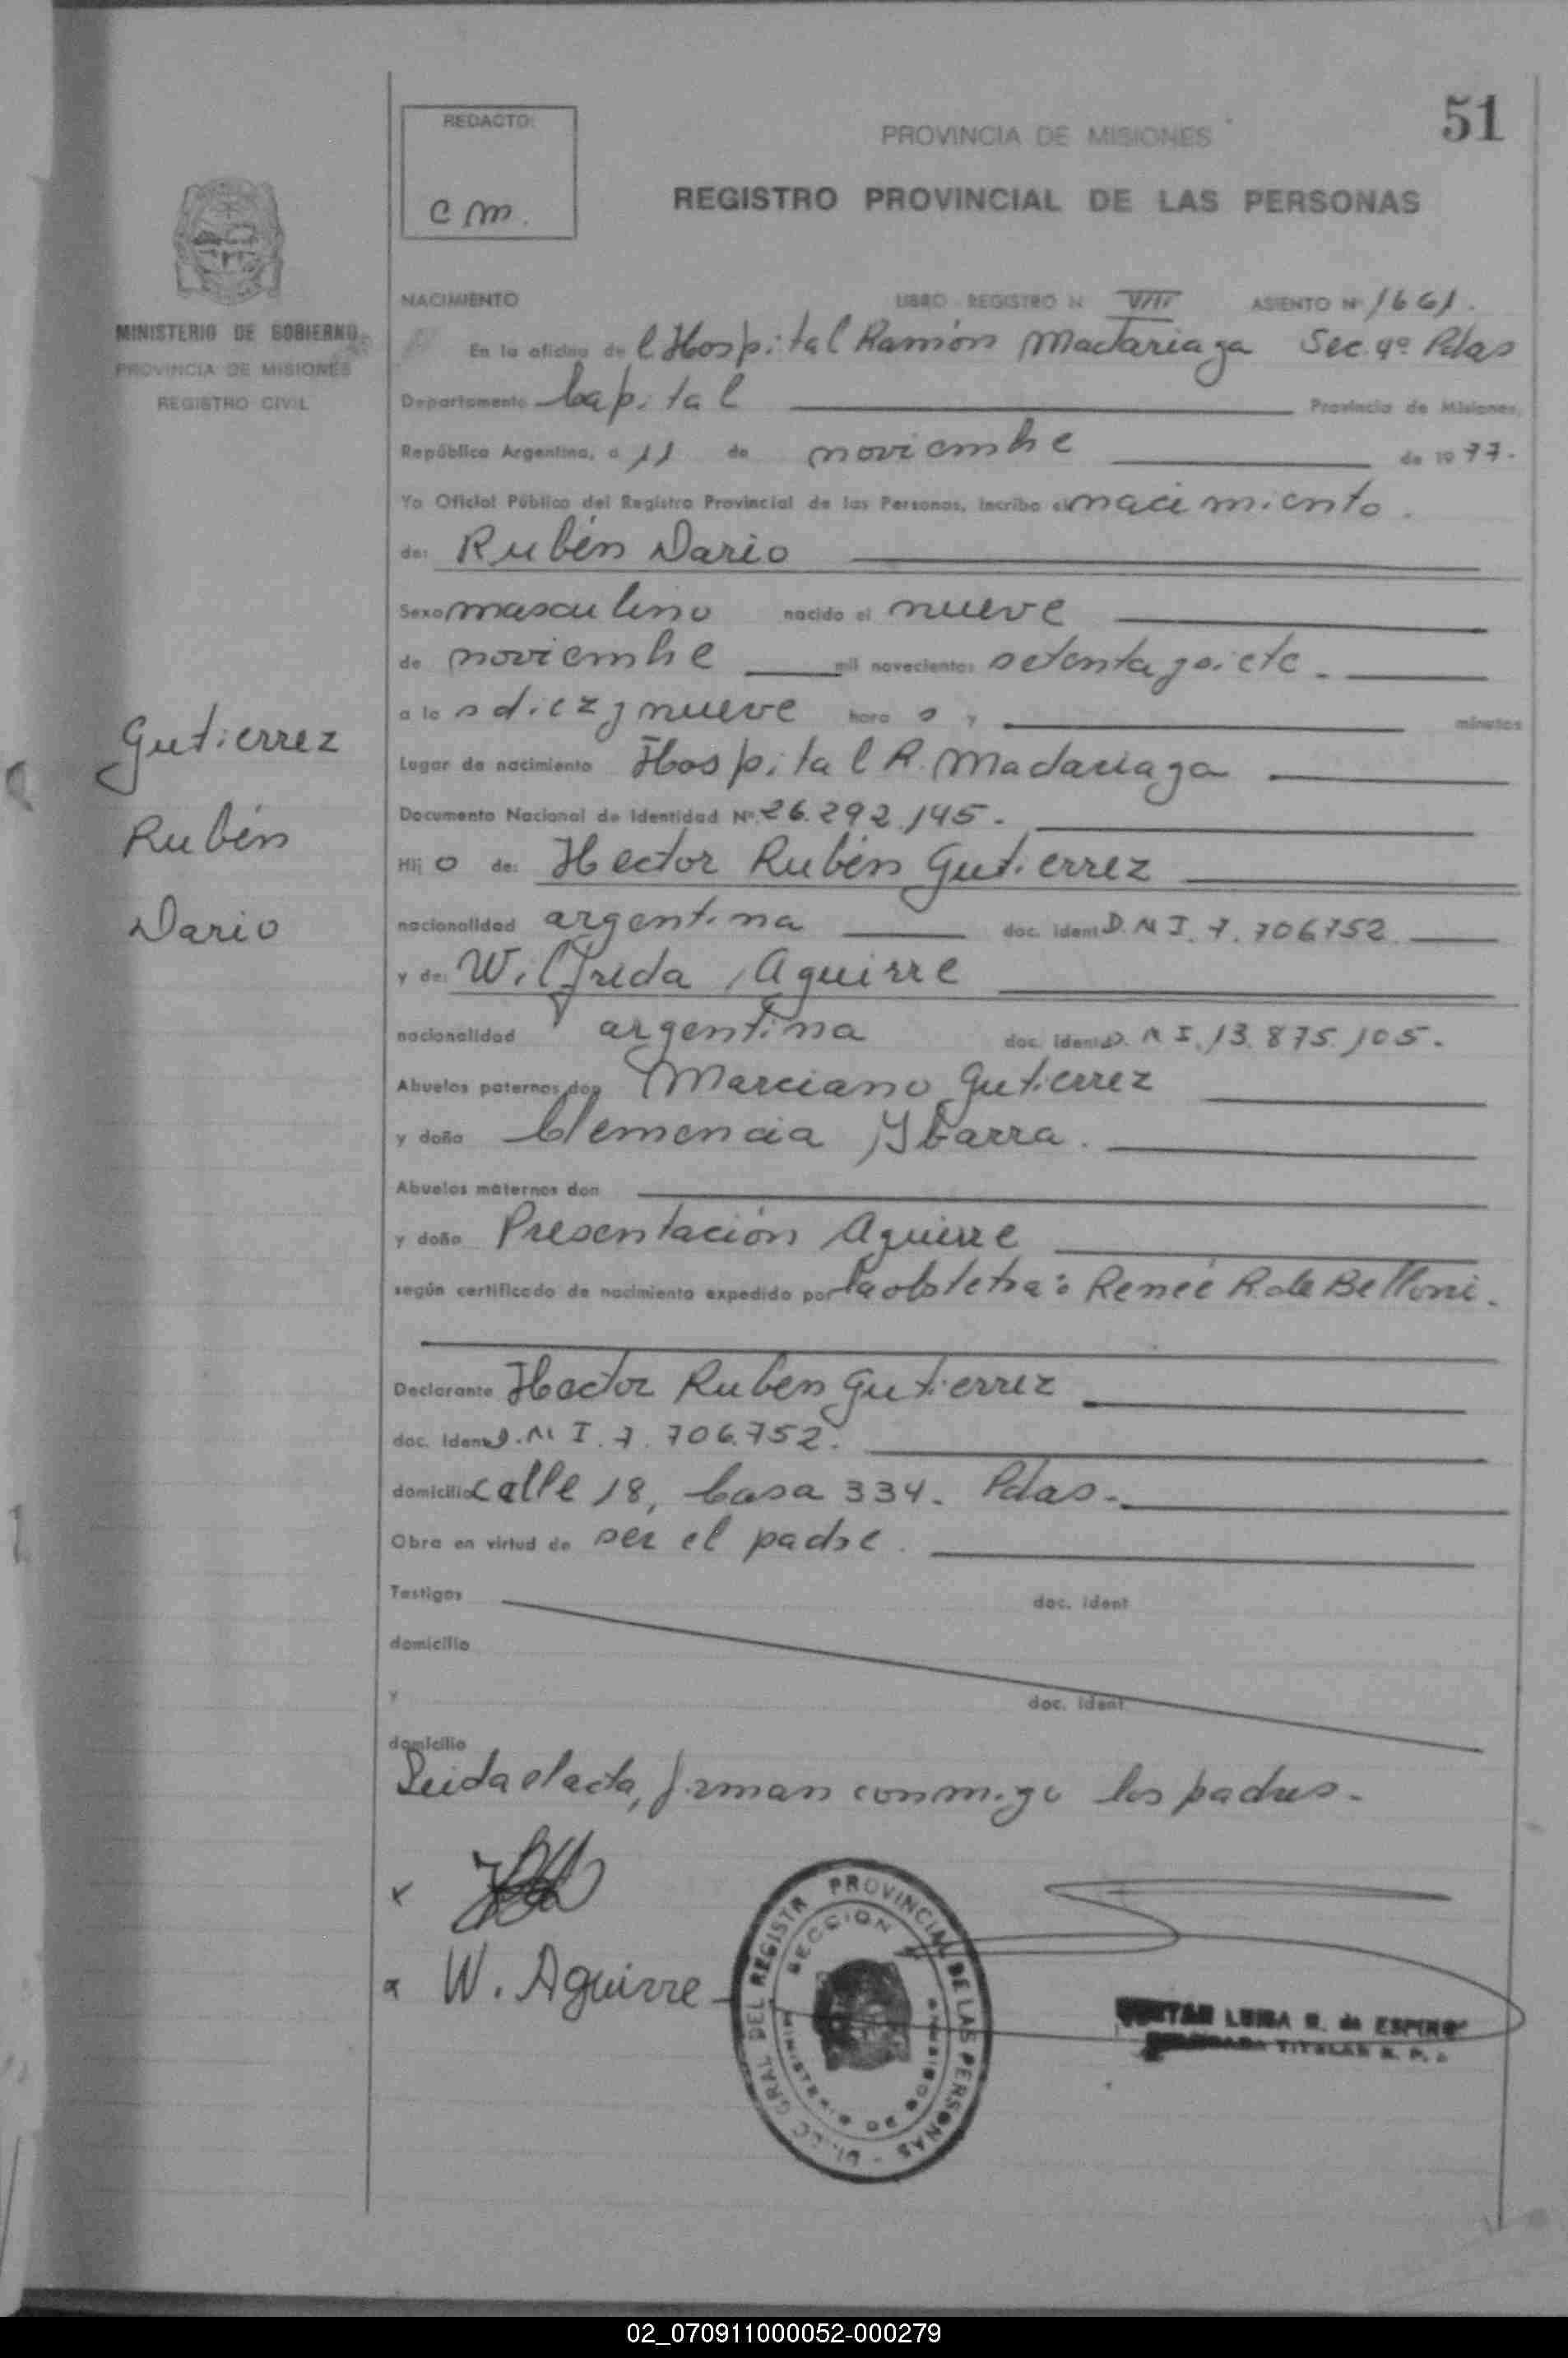 51
REDACTO:
c m.
PROVINCIA DE MISIONES
REGISTRO PROVINCIAL DE LAS PERSONAS
MINISTERIO DE GOBIERNO
PROVINCIA DE MISIONES
REGISTRO CIVIL
Gutierrez
Rubén
Dario
NACIMIENTO LIBRO REGISTRO N VIII ASIENTO Nº 1661.
En la oficina de l Hospital Ramón Madariaga Sec. 4º Pdas
Departamento Capital Provincia de Misiones,
República Argentina, a 11 de noviembre de 1977.
Yo Oficial Público del Registro Provincial de las Personas, inscribo el nacimiento.
de: Rubén Dario
Sexo masculino nacido el nueve
de noviembre mil novecientos setenta y siete.
a la s diez y nueve hora s y minutos
Lugar de nacimiento Hospital R. Madariaga
Documento Nacional de Identidad Nº 26.292.145.
Hij o de: Hector Rubén Gutierrez
nacionalidad argentina doc. ident D.N.I. 7.706.752
y de: Wilfrida Aguirre
nacionalidad argentina doc. ident D.N.I. 13.875.105.
Abuelos paternos don Marciano Gutierrez
y doña Clemencia Ybarra.
Abuelos maternos don
y doña Presentación Aguirre
según certificado de nacimiento expedido por la obstetra: Reneé R. de Belloni.
Declarante Hector Ruben Gutierrez
doc. ident D.N.I. 7.706.752.
domicilio calle 18, Casa 334. Pdas.
Obra en virtud de ser el padre.
Testigos doc. ident
domicilio
y doc. ident
domicilio
Leida el acta, firman conmigo los padres.
x
x W. Aguirre
DIREC. GRAL DEL REGISTR PROVINCIAL DE LAS PERSONAS
SECCION
LUISA R. de ESPINO
TITULAR R. P.
02_070911000052-000279